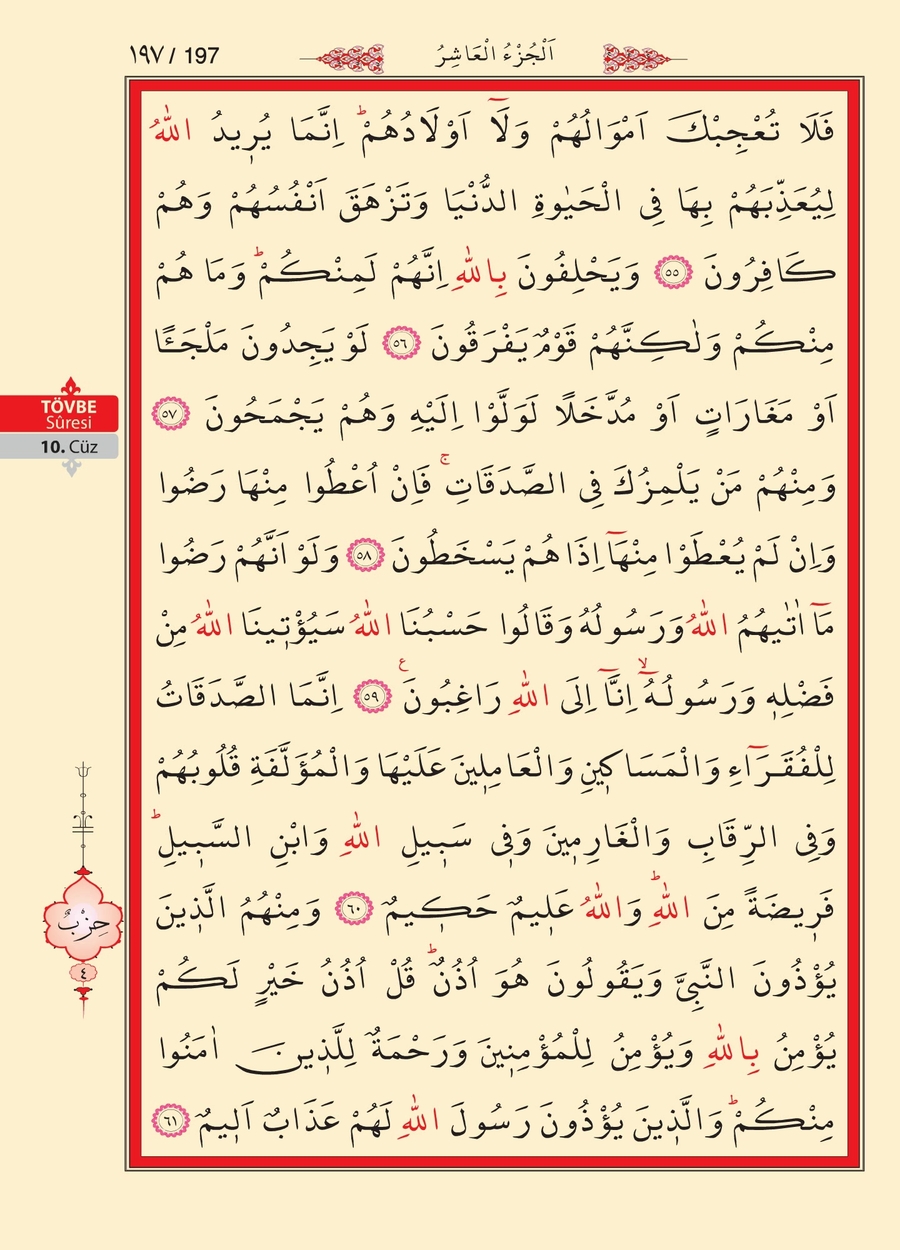 ١٩٧ / 197
اَلْجُزْءُ الْعَاشِرُ
فَلَا تُعْجِبْكَ اَمْوَالُهُمْ وَلَٓا اَوْلَادُهُمْۜ اِنَّمَا يُر۪يدُ اللّٰهُ
لِيُعَذِّبَهُمْ بِهَا فِى الْحَيٰوةِ الدُّنْيَا وَتَزْهَقَ اَنْفُسُهُمْ وَهُمْ
كَافِرُونَ ﴿٥٥﴾ وَيَحْلِفُونَ بِاللّٰهِ اِنَّهُمْ لَمِنْكُمْۜ وَمَا هُمْ
مِنْكُمْ وَلٰكِنَّهُمْ قَوْمٌ يَفْرَقُونَ ﴿٥٦﴾ لَوْ يَجِدُونَ مَلْجَـًٔا
اَوْ مَغَارَاتٍ اَوْ مُدَّخَلًا لَوَلَّوْا اِلَيْهِ وَهُمْ يَجْمَحُونَ ﴿٥٧﴾
وَمِنْهُمْ مَنْ يَلْمِزُكَ فِى الصَّدَقَاتِۚ فَاِنْ اُعْطُوا مِنْهَا رَضُوا
وَاِنْ لَمْ يُعْطَوْا مِنْهَٓا اِذَا هُمْ يَسْخَطُونَ ﴿٥٨﴾ وَلَوْ اَنَّهُمْ رَضُوا
مَٓا اٰتٰيهُمُ اللّٰهُ وَرَسُولُهُ وَقَالُوا حَسْبُنَا اللّٰهُ سَيُؤْت۪ينَا اللّٰهُ مِنْ
فَضْلِه۪ وَرَسُولُهُٓۙ اِنَّٓا اِلَى اللّٰهِ رَاغِبُونَ۟ ﴿٥٩﴾ اِنَّمَا الصَّدَقَاتُ
لِلْفُقَرَٓاءِ وَالْمَسَاك۪ينِ وَالْعَامِل۪ينَ عَلَيْهَا وَالْمُؤَلَّفَةِ قُلُوبُهُمْ
وَفِى الرِّقَابِ وَالْغَارِم۪ينَ وَف۪ى سَب۪يلِ اللّٰهِ وَابْنِ السَّب۪يلِۜ
فَر۪يضَةً مِنَ اللّٰهِۜ وَاللّٰهُ عَل۪يمٌ حَك۪يمٌ ﴿٦٠﴾ وَمِنْهُمُ الَّذ۪ينَ
يُؤْذُونَ النَّبِىَّ وَيَقُولُونَ هُوَ اُذُنٌۜ قُلْ اُذُنُ خَيْرٍ لَكُمْ
يُؤْمِنُ بِاللّٰهِ وَيُؤْمِنُ لِلْمُؤْمِن۪ينَ وَرَحْمَةٌ لِلَّذ۪ينَ اٰمَنُوا
مِنْكُمْۜ وَالَّذ۪ينَ يُؤْذُونَ رَسُولَ اللّٰهِ لَهُمْ عَذَابٌ اَل۪يمٌ ﴿٦١﴾
TÖVBE
Sûresi
10. Cüz
حِزْبٌ
٤